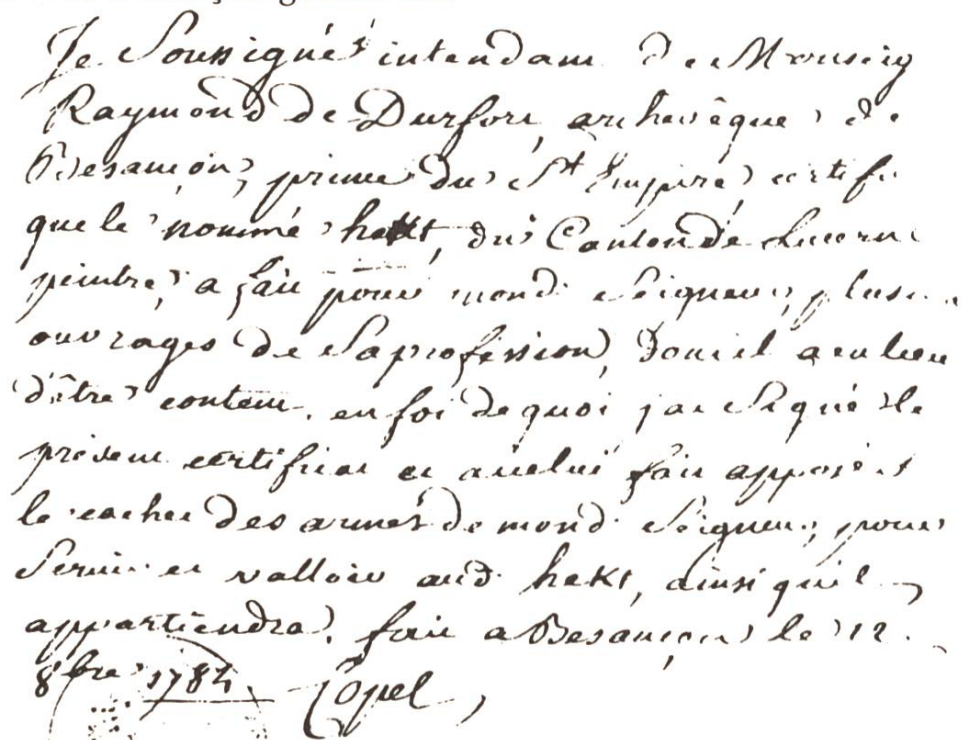 Je Soussigné intendant de Monseig
Raymond de Durfort, archevêque de
Besançon, prince du St Empire, certifie
que le nommé hekt, du Canton de Lucerne
peintre, a fait pour mond. Seigneur, plus
ouvrages de Sa profession, Dont il a eu lieu
d'être content. en foi de quoi j'ai Signé le
présent certificat et a icelui fait apposer
le cachet des armes de mond. Seigneur, pour
Servir et valloir aud. hekt, ainsi qu'il
appartiendra. fait a Besançon le 12.
8bre 1784. Copel,